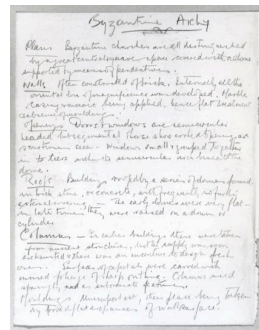 Byzantine Archy
Plans Byzantine churches are all distinguished
by a great central square space covered with a dome
supported by means of pendentives.
Walls Often constructed of brick. Internally all the
oriental love of magnificence was developed. Marble
casing mosaic being applied, hence flat treatment
Openings Doors & windows are semicircular
headed but segmental & horse shoe arched openings are
sometimes seen. Windows small & grouped together
in tiers within the semicircular arch beneath the
dome.
Roofs Buildings roofed by a series of domes formed
in brick stone, or concrete, with frequently no further
external covering. The early domes were very flat
in later times they were raised on a drum or
cylinder
Columns In earlier buildings these were taken
from ancient structures, but the supply was soon
exhausted & there was an incentive to design fresh
ones. Surface of capitals were carved with
foliage of sharp outline. Columns used
sparingly and as introducted features.
Mouldings Unimportant, their place being taken
by broad flat expanses of wall surface.